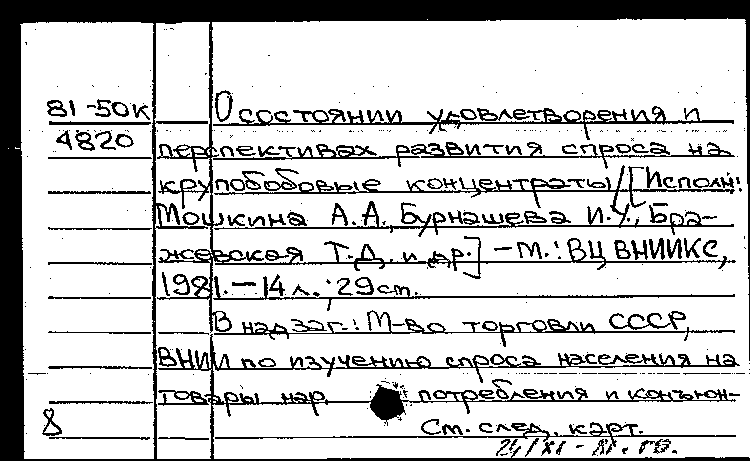 81-50к О состоянии удовлетворения и
4820 перспективах развития спроса на
крупобобовые концентраты/[Исполн:
Мошкина А.А., Бурнашева И.У., Бра-
жевская Т.Д. и др.] – М.: ВЦ ВНИИКС,
1981. – 14 л.; 29 см.
В надзаг.: М-во торговли СССР,
ВНИИ по изучению спроса населения на
товары нар. потребления и конъюн-
8 См. след. карт.
24/XI - 81. го.